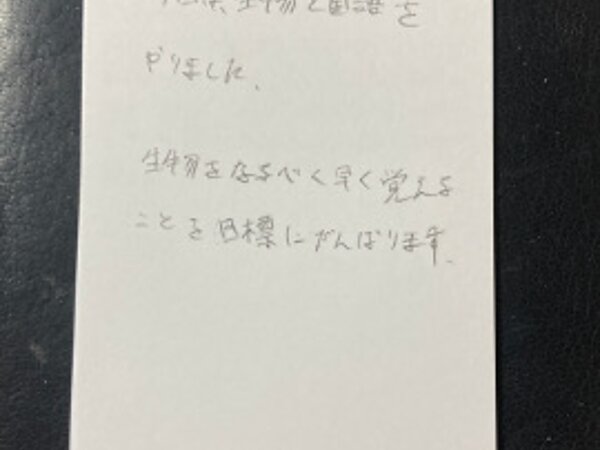 生物と国語を
やりました.
生物をなるべく早く覚える
ことを目標にがんばります.